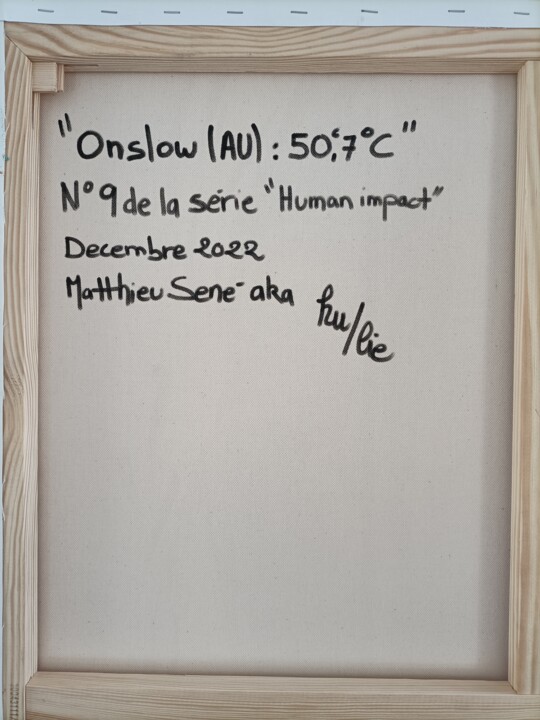 "Onslow (AU) : 50,7°C"
N° 9 de la série "Human impact"
Decembre 2022
Matthieu Sené aka